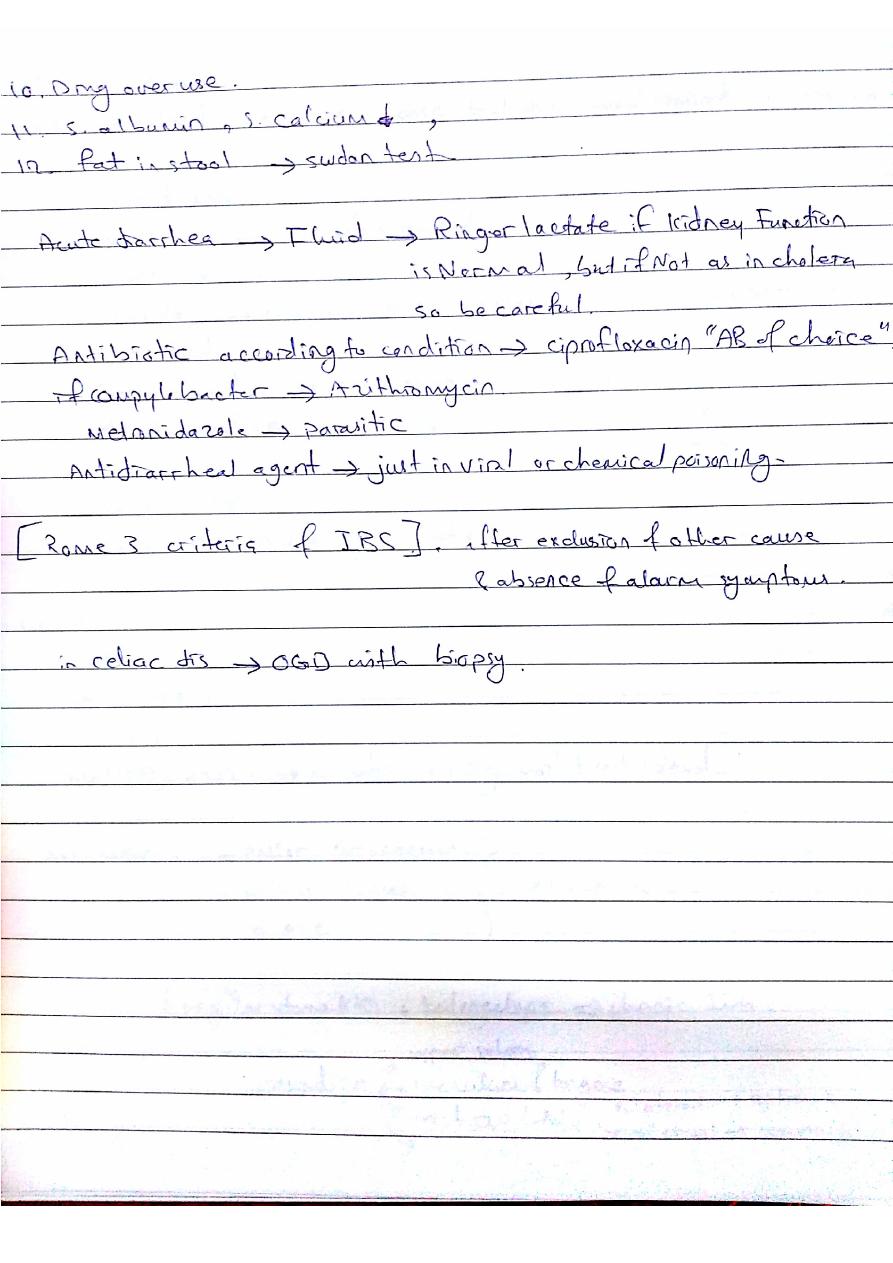 10. Drug over use.
11. S. albumin, S. Calcium ↓,
12. fat in stool → swdan test
Acute diarrhea → Fluid → Ringer lactate if kidney Function
is Normal, but if Not as in cholera
so be careful.
Antibiotic according to condition → ciprofloxacin "AB of choice"
if campylebacter → Azithromycin
Metronidazole → parasitic
Antidiarrheal agent → just in viral or chemical poisoning-
[Rome 3 criteria of IBS]. after exclusion of other cause
& absence of alarm symptoms.
in celiac dis → OGD with biopsy.